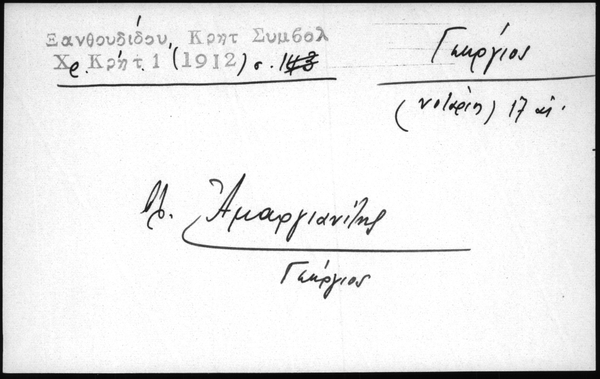 Ξανθουδίδου, Κρητ Συμβολ
Χρ. Κρήτ. 1 (1912) σ. 143
Γεώργιος
(νοτάριος) 17 αι.
βλ. Ἀμαργιανίτης
Γεώργιος